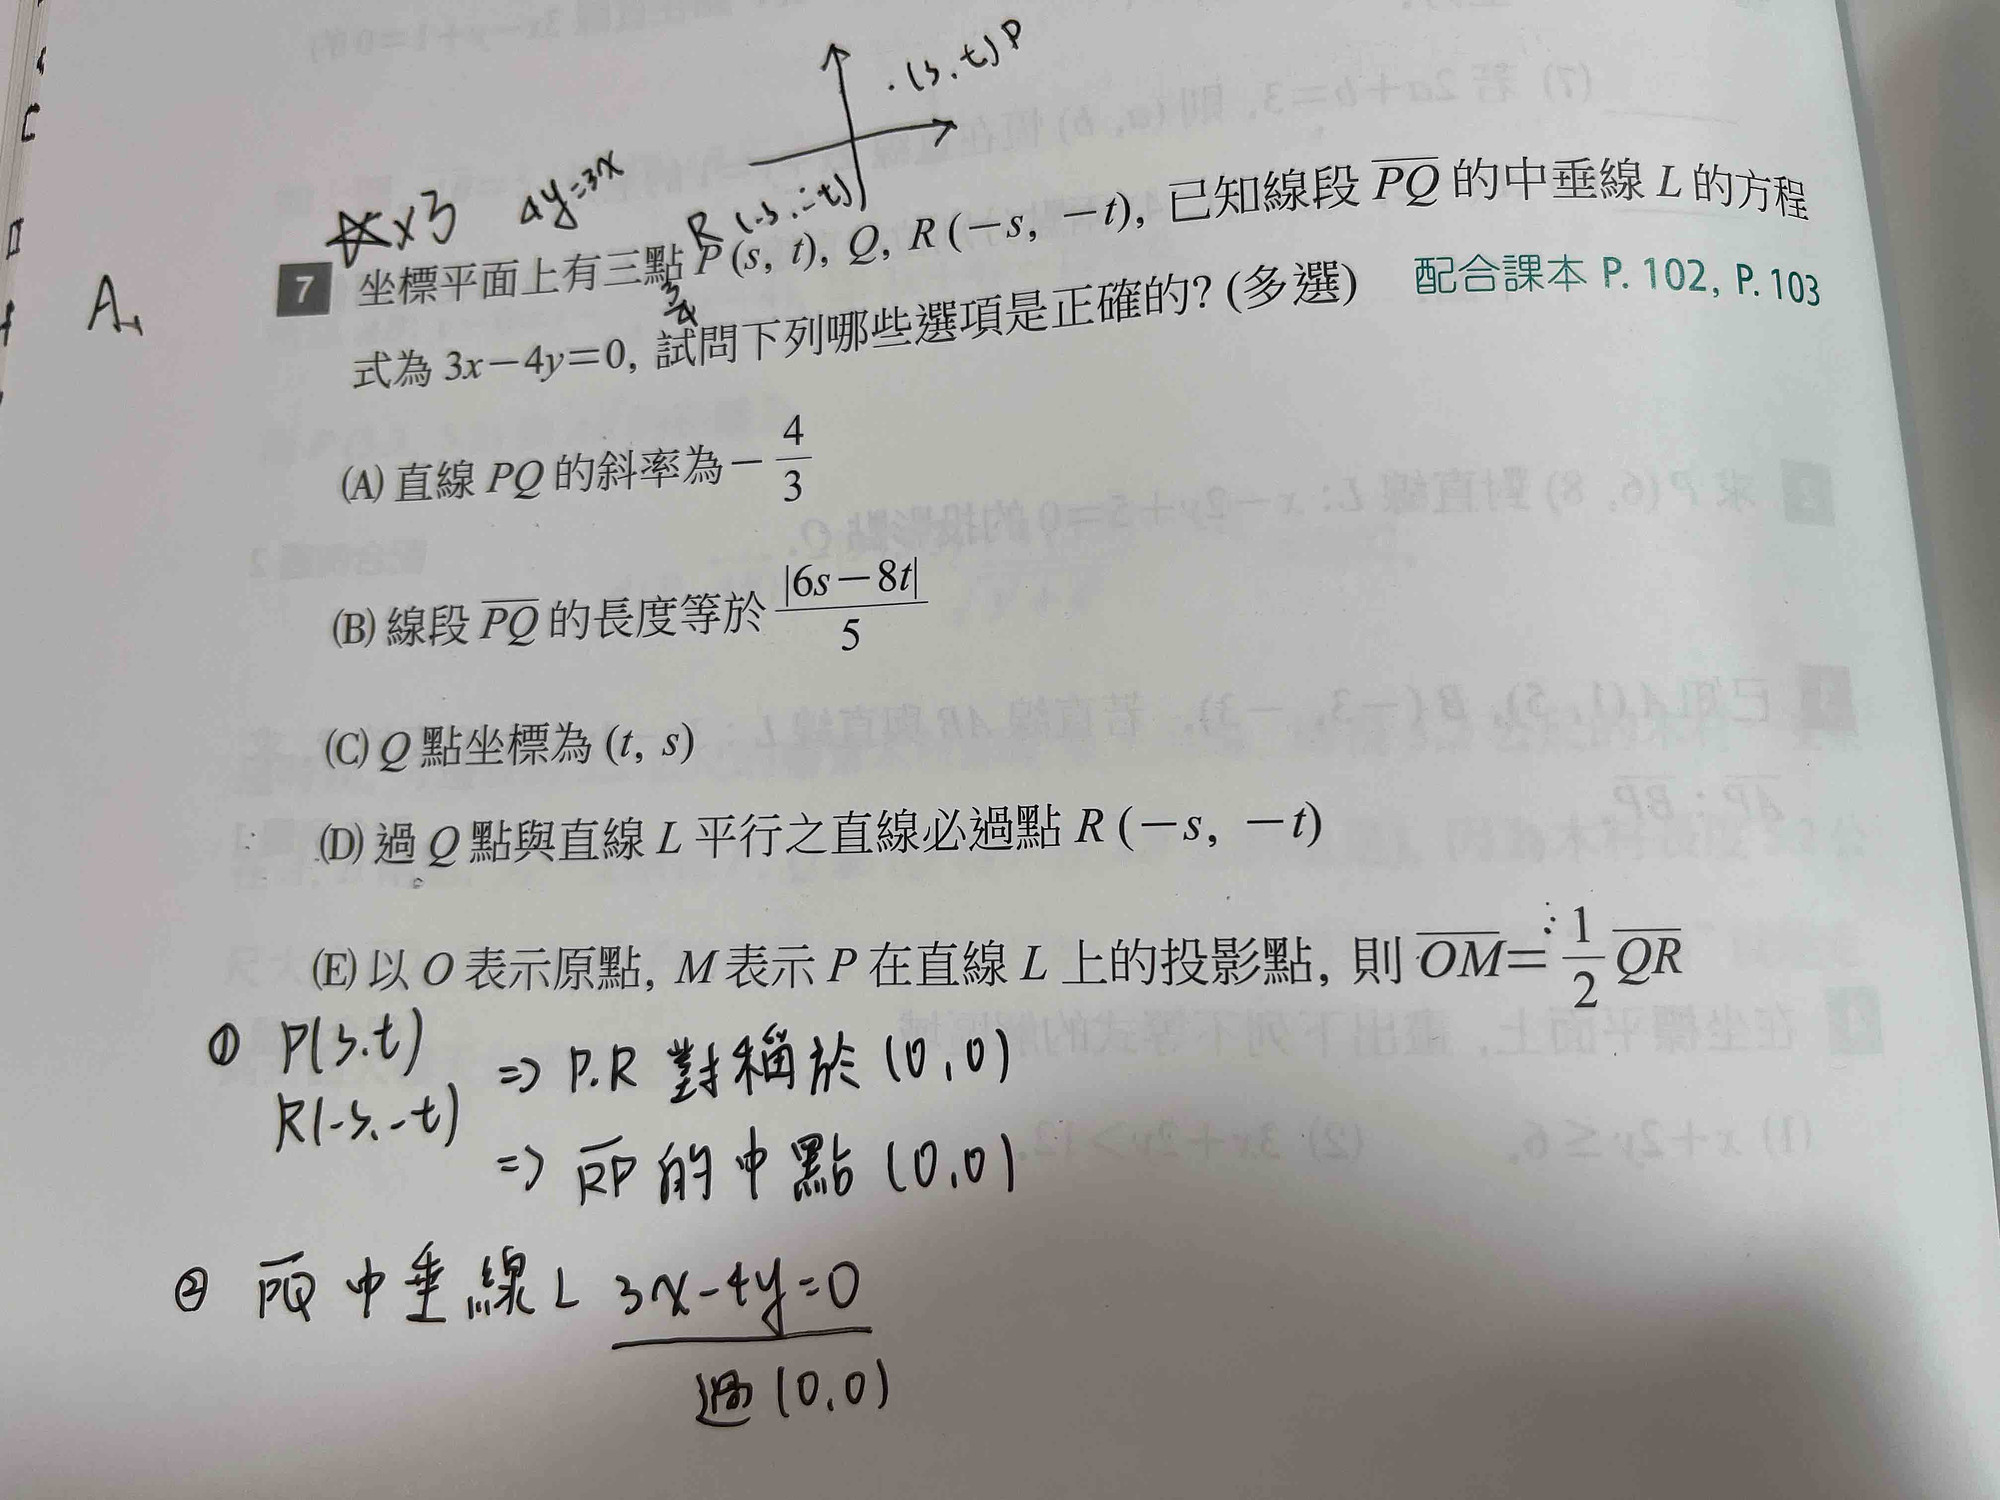 .(s,t) P
☆×3 4y=3x R(-s,-t)
7 坐標平面上有三點 P(s, t), Q, R(-s, -t), 已知線段 PQ 的中垂線 L 的方程
3/4
式為 3x-4y=0, 試問下列哪些選項是正確的? (多選) 配合課本 P. 102, P. 103
A,
(A) 直線 PQ 的斜率為 -4/3
(B) 線段 PQ 的長度等於 |6s-8t|/5
(C) Q 點坐標為 (t, s)
(D) 過 Q 點與直線 L 平行之直線必過點 R (-s, -t)
(E) 以 O 表示原點, M 表示 P 在直線 L 上的投影點, 則 OM=1/2 QR
① P(s,t) ⇒ P.R 對稱於 (0,0)
R(-s,-t)
⇒ RP 的中點 (0,0)
② PQ 中垂線 L 3x-4y=0
過 (0,0)